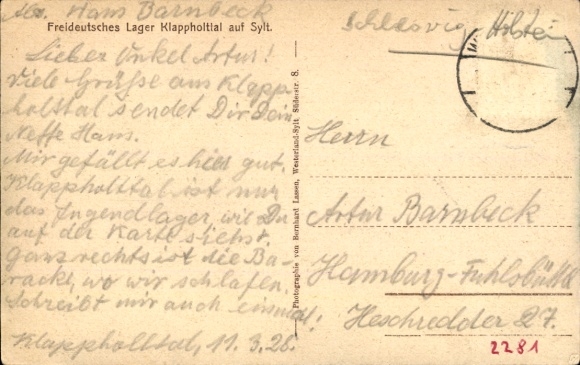 Abs. Hans Barnbeck
Freideutsches Lager Klappholttal auf Sylt.
Schleswig Holstein
Lieber Onkel Artur!
Viele Grüße aus Klapp-
holttal sendet Dir Dein
Neffe Hans.
Mir gefällt es hier gut.
Klappholttal ist nur
das Jugendlager, wie Du
auf der Karte siehst.
Ganz rechts ist die Ba-
racke, wo wir schlafen.
Schreibt mir auch einmal!
Klappholttal, 11.3.28.
Photographie von Bernhard Lassen, Westerland-Sylt, Süderstr. 8.
Herrn
Artur Barnbeck
Hamburg-Fuhlsbüttel
Heschredder 27.
2281